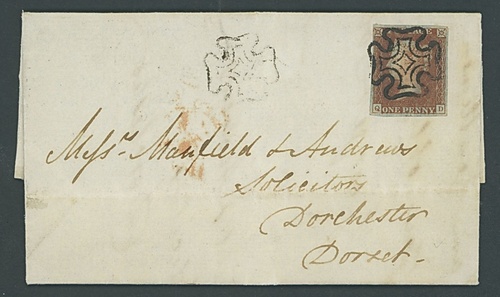 ONE PENNY
D
Messrs. Manfield & Andrews
Solicitors
Dorchester
Dorset.